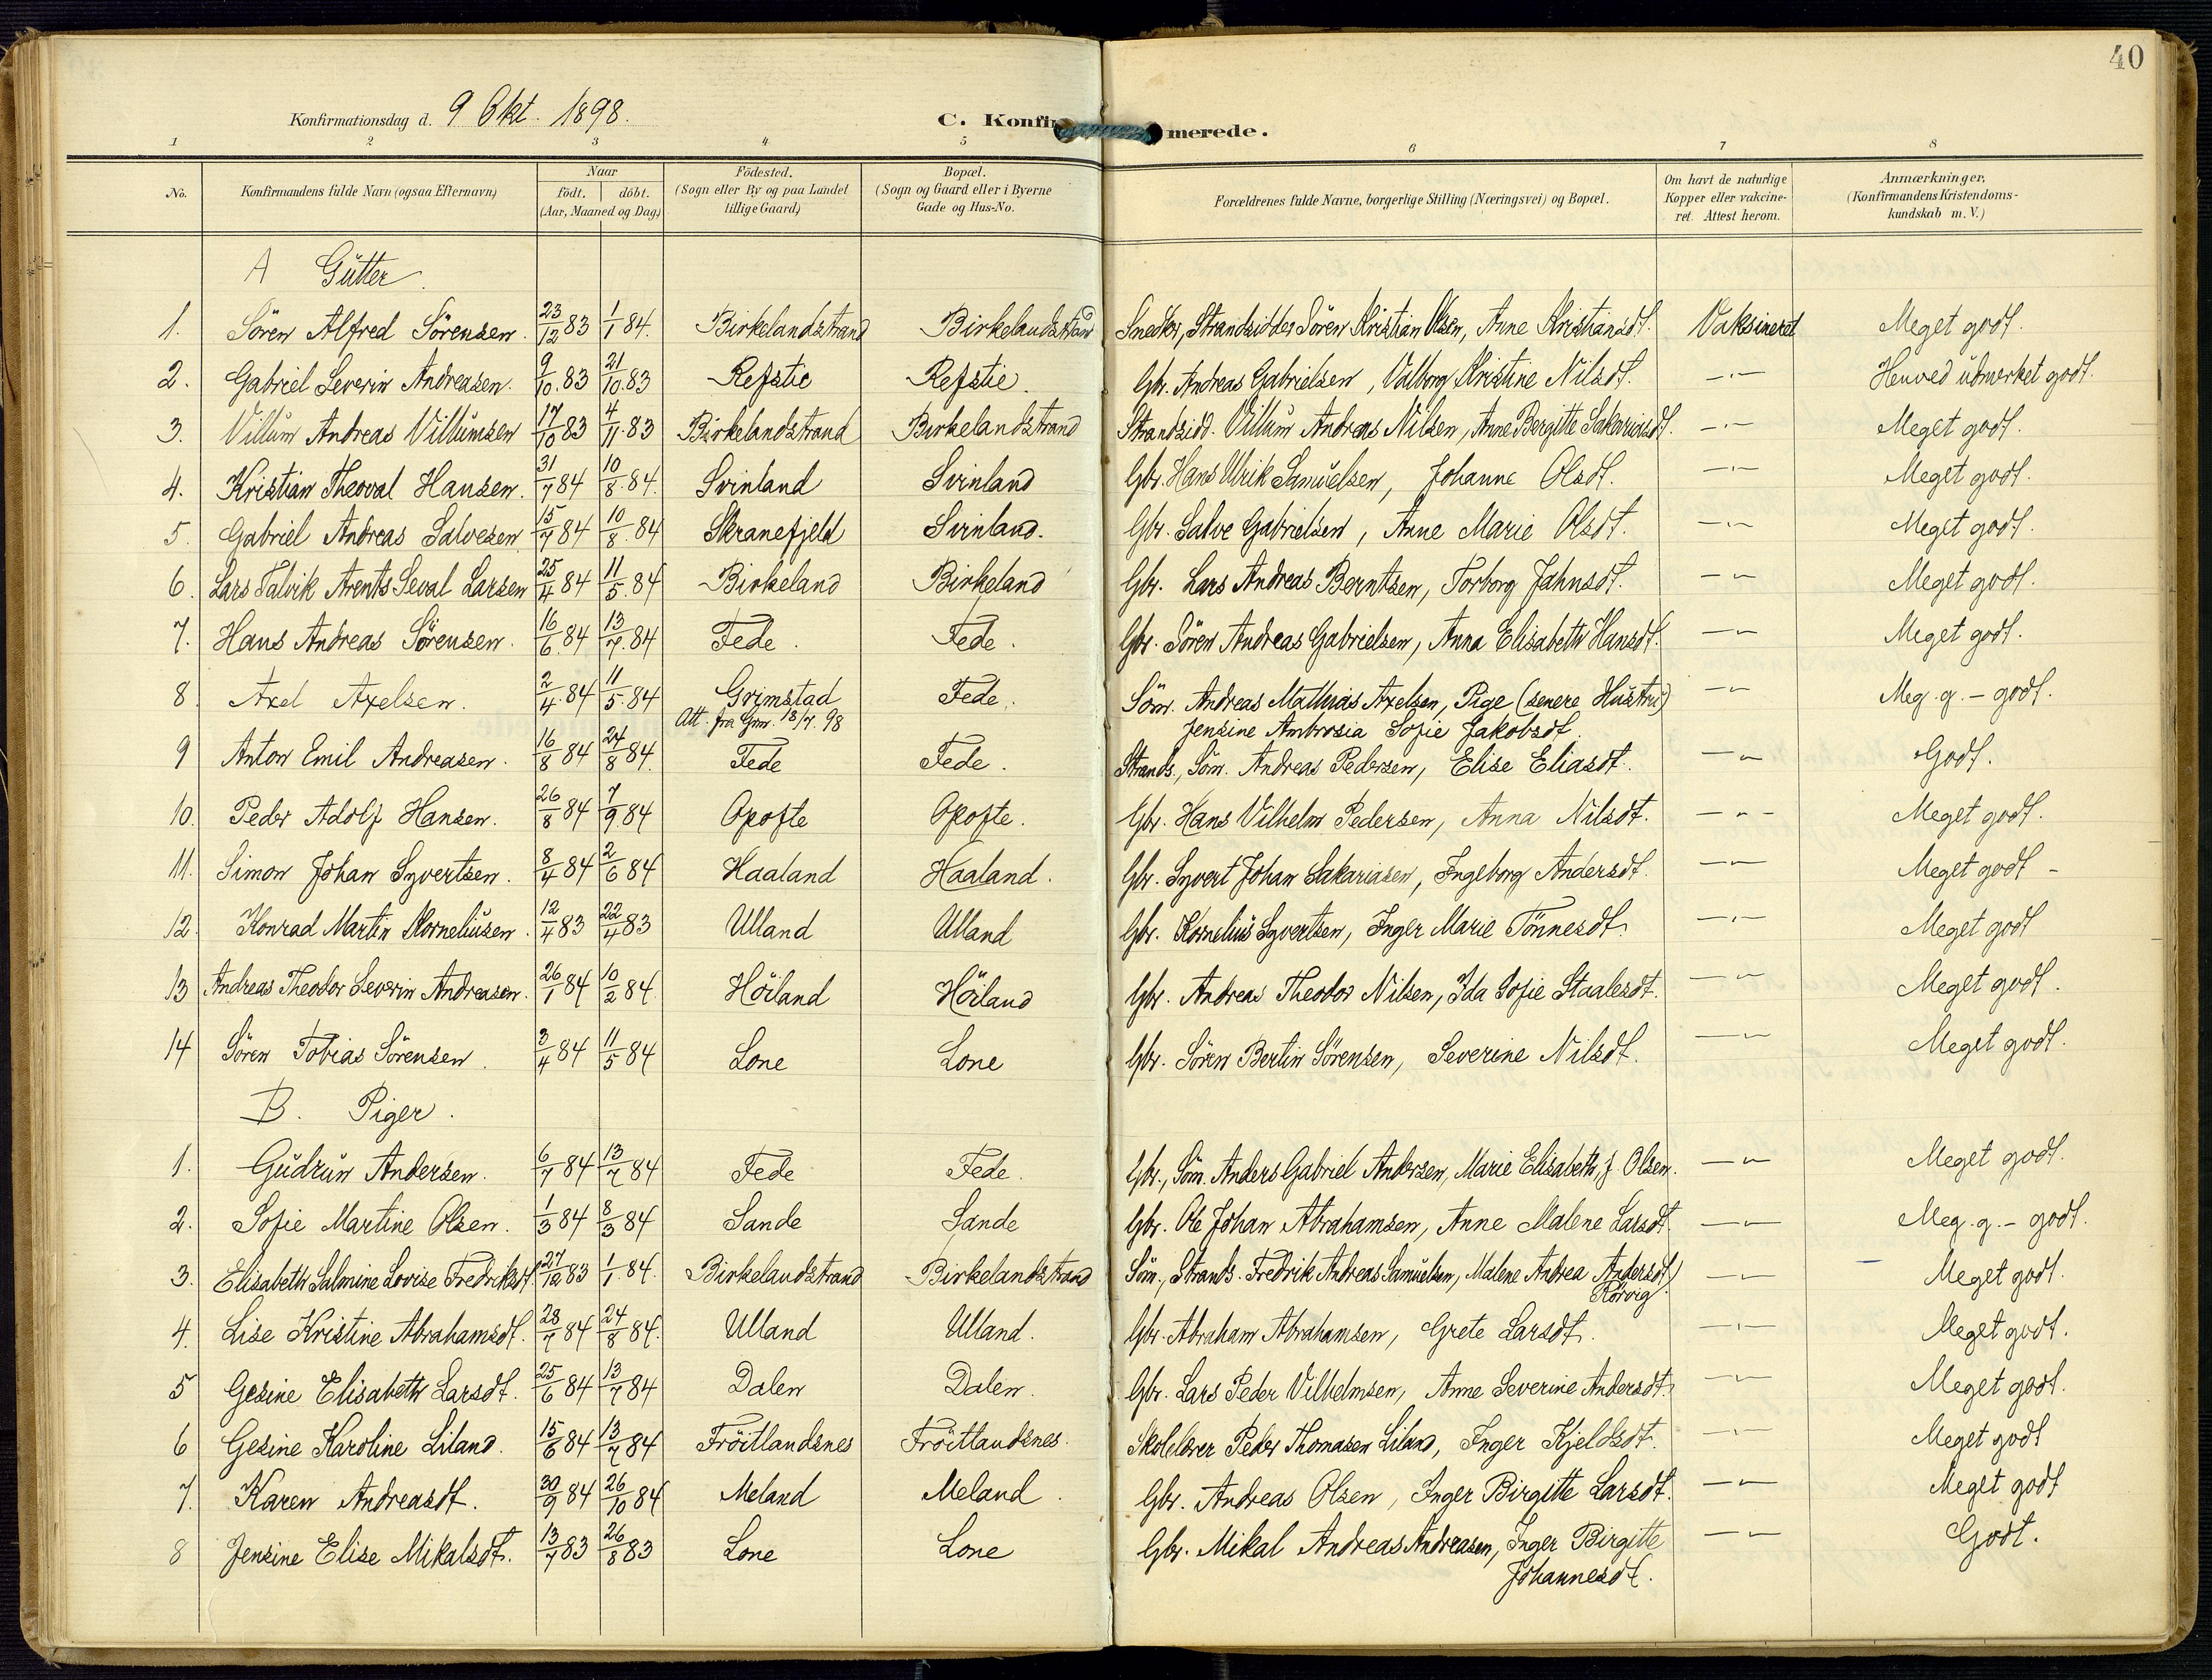 40
Konfirmationsdag d. 9 Okt. 1898.
C. Konfirmerede.
1 2 3 4 5 6 7 8
No. | Konfirmandens fulde Navn (ogsaa Efternavn) | Naar födt. döbt. (Aar, Maaned og Dag) | Födested. (Sogn eller By og paa Landet tillige Gaard) | Bopæl. (Sogn og Gaard eller i Byerne Gade og Hus-No. | Forældrenes fulde Navne, borgerlige Stilling (Næringsvei) og Bopæl. | Om havt de naturlige Kopper eller vakcineret. Attest herom. | Anmærkninger. (Konfirmandens Kristendomskundskab m. V.)
A Gütter.
1. Sören Alfred Sörensen. 23/12 83 1/1 84. Birkelandstrand Birkelandstrand Snedker, Strandsidder Sören Kristian Olsen, Anne Kristiansdt. Vaksineret Meget godt.
2. Gabriel Severin Andreasen. 9/10. 83 21/10. 83 Refstie Refstie. Gbr. Andreas Gabrielsen, Valborg Kristine Nilsdt. —"— Henved üdmerket godt.
3. Villüm Andreas Villümsen 17/10 83 4/11. 83 Birkelandstrand Birkelandstrand Strandsidd. Villüm Andreas Nilsen, Anne Bergitte Sakariasdt. —"— Meget godt.
4. Kristian Theoval Hansen. 31/7 84 10/8. 84. Svinland Svinland Gbr. Hans Ulrik Samüelsen, Johanne Olsdt. —"— Meget godt.
5. Gabriel Andreas Salvesen 15/7 84 10/8. 84 Skranefjeld Svinland. Gbr. Salve Gabrielsen, Anne Marie Olsdt. —"— Meget godt.
6. Lars Talvik Arents Seval Larsen 25/4 84 11/5. 84 Birkeland Birkeland Gbr. Lars Andreas Berntsen, Torborg Jahnsdt. —"— Meget godt.
7. Hans Andreas Sörensen. 16/6. 84 13/7. 84 Fede. Fede. Gbr. Sören Andreas Gabrielsen, Anna Elisabeth Hansdt. —"— Meget godt.
8. Axel Axelsen. 2/4 84 11/5. 84 Grimstad Fede. Söm. Andreas Mathias Axelsen, Pige (senere Hüstrü) —"— Meg. g. - godt.
Att. fra Grm. 13/7. 98 Jensine Ambrosia Sofie Jakobsdt.
9 Anton Emil Andreasen. 16/8 84 24/8 84. Fede Fede. Strands., Söm. Andreas Pedersen, Elise Eliasdt. —"— Godt.
10. Peder Adolf Hansen. 26/8 84 7/9. 84 Opofte Opofte. Gbr. Hans Vilhelm Pedersen, Anna Nilsdt. —"— Meget godt.
11. Simon Johan Syvertsen. 8/4 84 2/6 84 Haaland Haaland. Gbr. Syvert Johan Sakariasen, Ingeborg Andersdt. —"— Meget godt -
12. Konrad Martin Korneliüsen. 12/4 83 22/4 83 Ulland Ulland Gbr. Kornelius Syvertsen, Inger Marie Tönnesdt. —"— Meget godt
13 Andreas Theodor Severin Andreasen. 26/1 84 10/2 84. Höiland Höiland Gbr. Andreas Theodor Nilsen, Ida Sofie Staalesdt. —"— Meget godt.
14 Sören Tobias Sörensen. 3/4 84 11/5 84 Lone Lone Gbr. Sören Bertin Sörensen, Severine Nilsdt. —"— Meget godt.
B. Piger.
1. Güdrün Andersen. 6/7 84 13/7 84 Fede Fede. Gbr., Söm. Anders Gabriel Andersen, Marie Elisabeth, f. Olsen. —"— Meget godt.
2. Sofie Martine Olsen. 1/3 84 8/3 84 Sande Sande Gbr. Ole Johan Abrahamsen, Anne Malene Larsdt. —"— Meg. g. - godt.
3. Elisabeth Salmine Lovise Fredriksdt. 27/12 83 1/1. 84. Birkelandstrand Birkelandstrand Söm., Strands. Fredrik Andreas Samüelsen, Malene Andrea Andersdt. —"— Meget godt.
Rörvig
4. Lise Kristine Abrahamsdt. 28/7 84 24/8 84. Ulland Ulland. Gbr. Abraham Abrahamsen, Grete Larsdt. —"— Meget godt.
5 Gesine Elisabeth Larsdt. 25/6 84 13/7 84 Dalen Dalen. Gbr. Lars Peder Vilhelmsen, Anne Severine Andersdt. —"— Meget godt.
6 Gesine Karoline Liland. 15/6 84 13/7 84 Fröitlandsnes Fröitlandsnes. Skolelærer Peder Thomasen Liland, Inger Kjeldsdt. —"— Meget godt
7. Karen Andreasdt. 30/9 84 26/10 84 Meland Meland. Gbr. Andreas Olsen, Inger Birgitte Larsdt. —"— Meget godt
8 Jensine Elise Mikalsdt. 13/7 83 26/8 83 Lone Lone Gbr. Mikal Andreas Andreasen, Inger Birgitte —"— Godt.
Johannesdt.